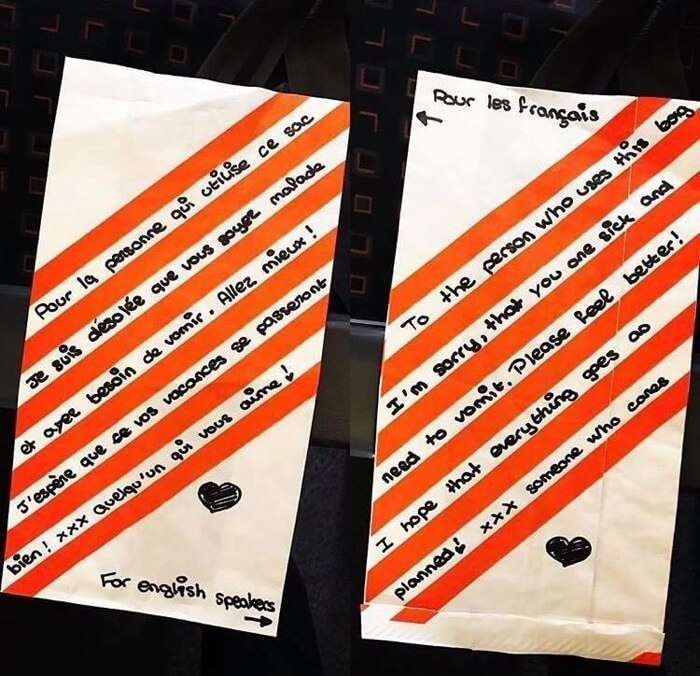 Pour la personne qui utilise ce sac
Je suis désolée que vous soyez malade
et ayez besoin de vomir. Allez mieux !
J'espère que ce vos vacances se passeront
bien ! xxx Quelqu'un qui vous aime !
For english speakers
Pour les français
To the person who uses this bag
I'm sorry, that you are sick and
need to vomit. Please feel better!
I hope that everything goes as
planned! xxx someone who cares